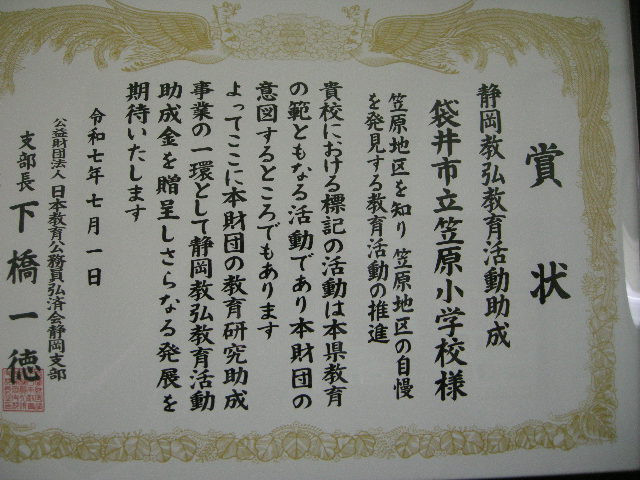 賞状
静岡教弘教育活動助成
袋井市立笠原小学校様
笠原地区を知り 笠原地区の自慢
を発見する教育活動の推進
貴校における標記の活動は本県教育
の範ともなる活動であり本財団の
意図するところでもあります
よってここに本財団の教育研究助成
事業の一環として静岡教弘教育活動
助成金を贈呈しさらなる発展を
期待いたします
令和七年七月一日
公益財団法人 日本教育公務員弘済会静岡支部
支部長 下橋一徳